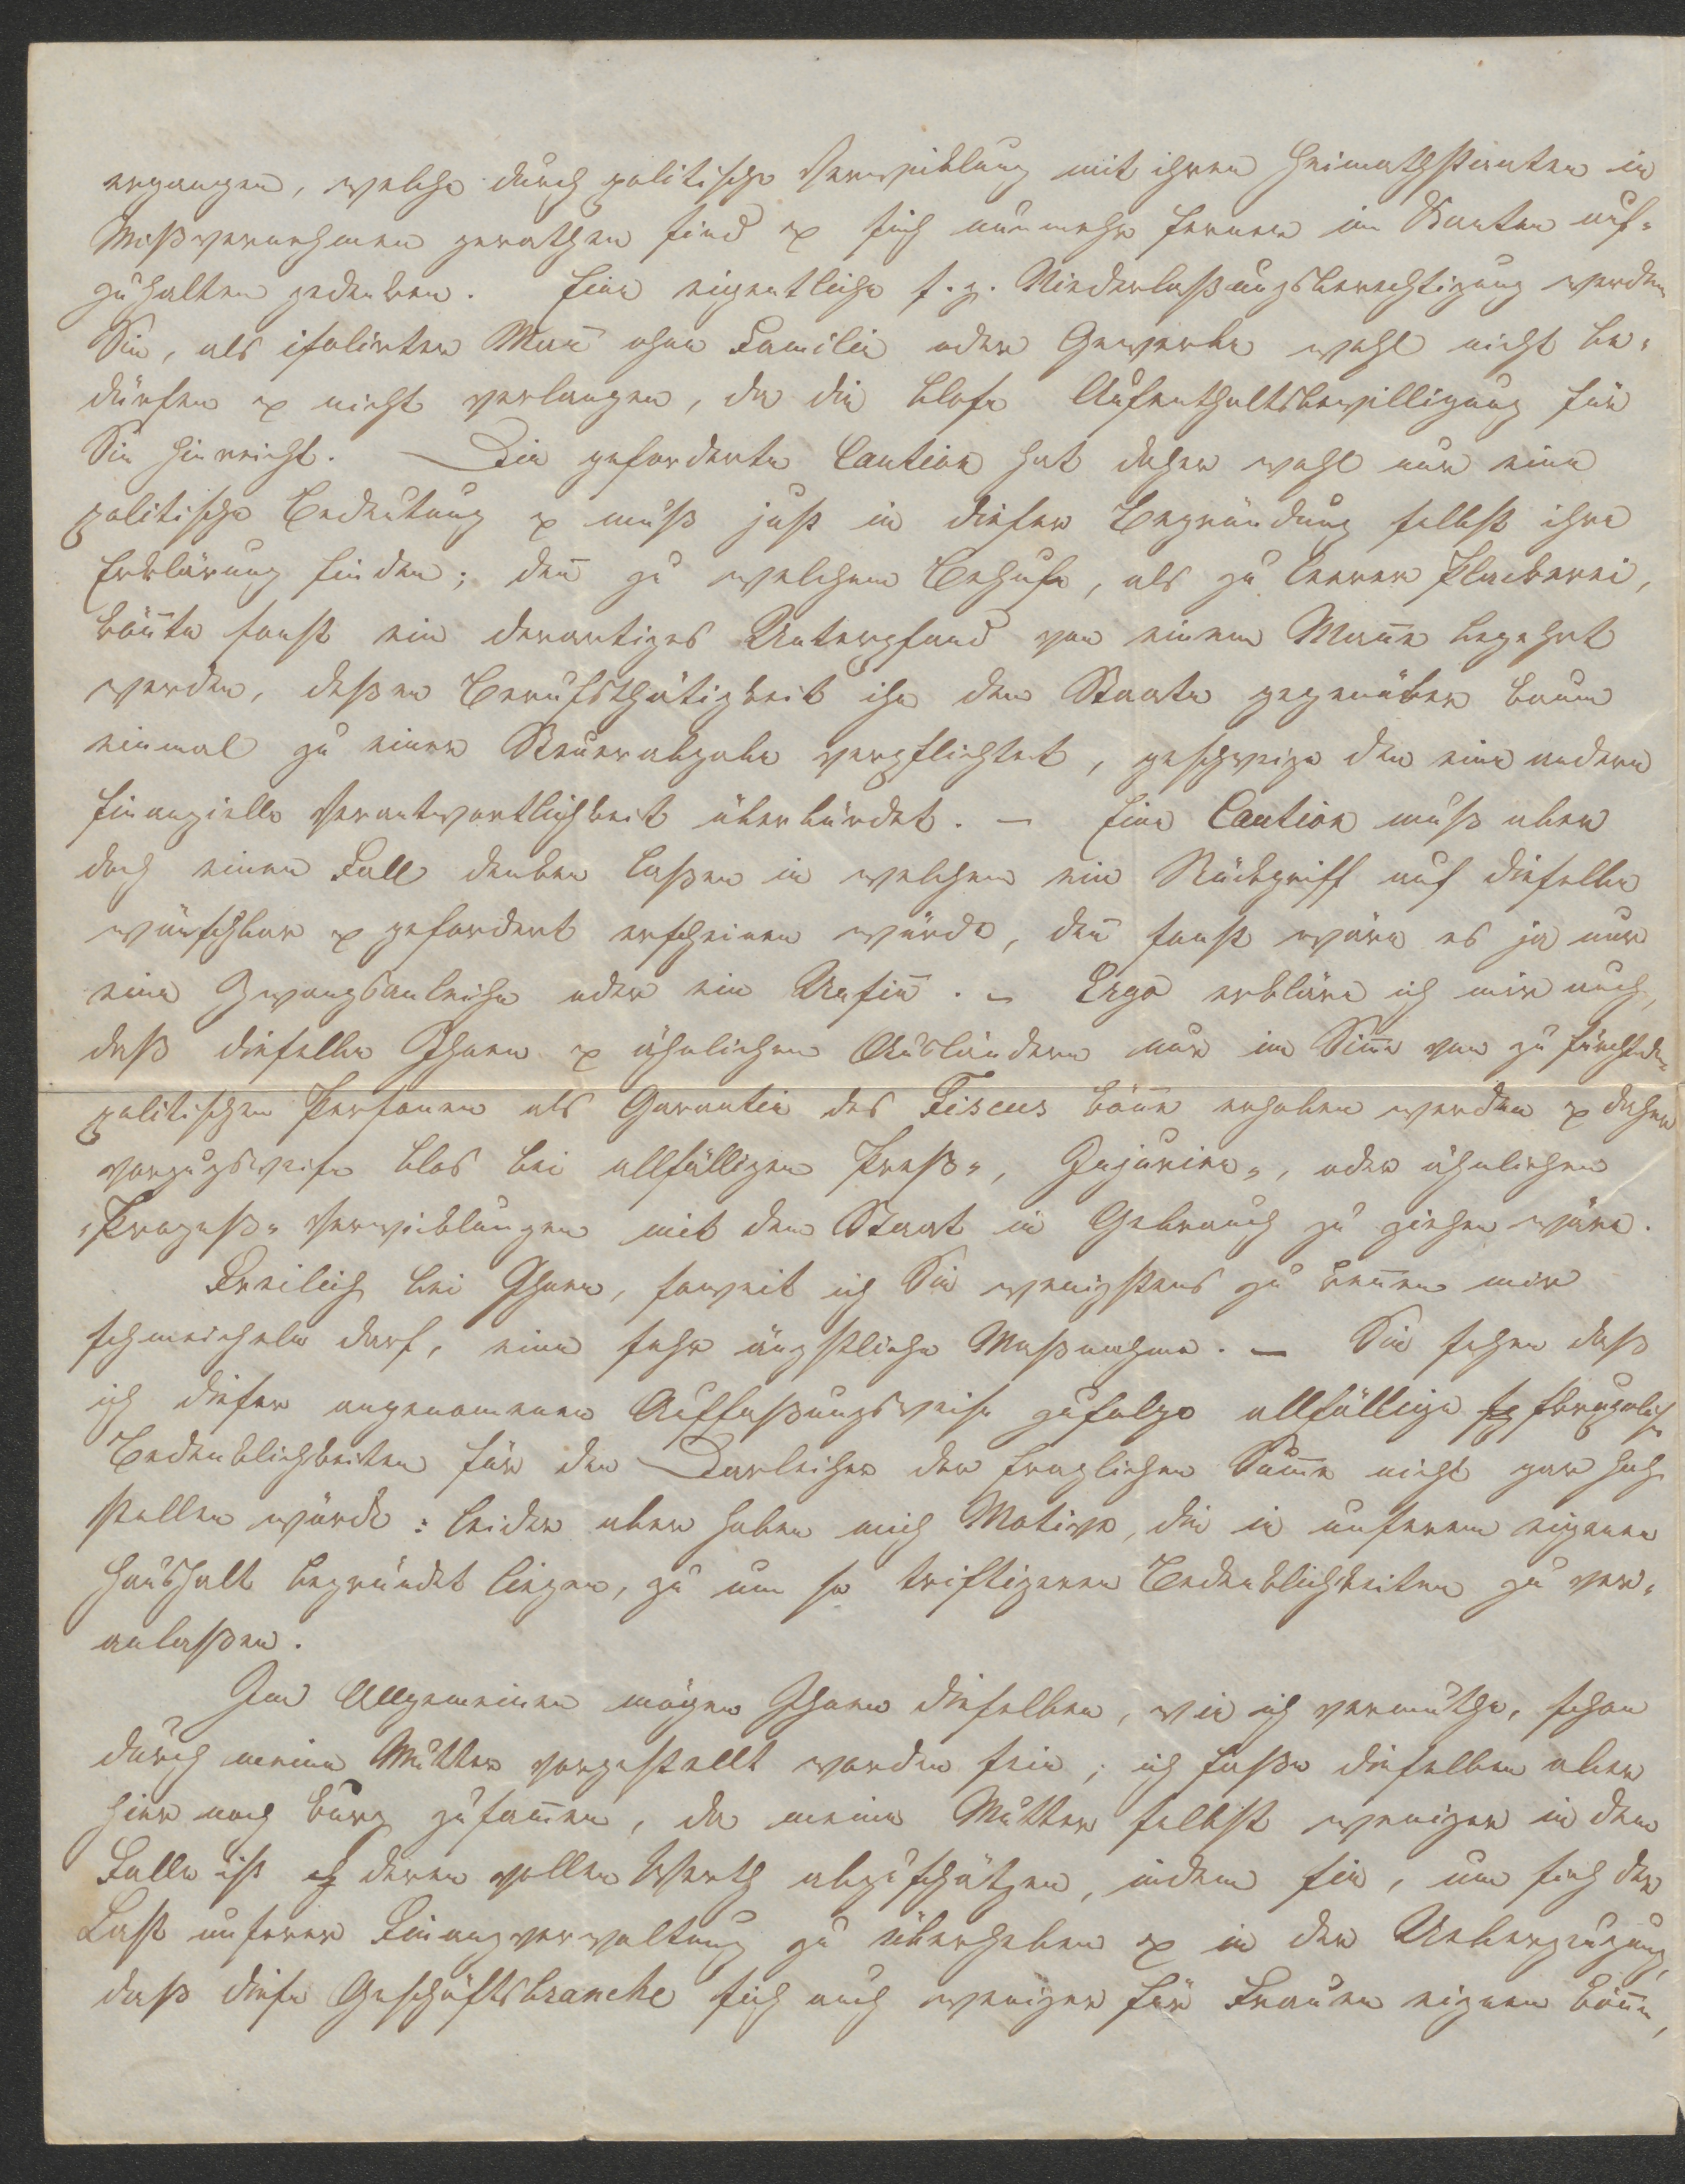 ergangen, welche durch politische Verwicklung mit ihren Heimathstaaten in
Mißvernehmen gerathen sind & sich nunmehr ferner im Kanton auf-
zuhalten gedenken. Eine eigentliche s. g. Niederlaßungsberechtigung werden
Sie, als isolirter Mañ ohne Familie oder Gewerbe wohl nicht be-
dürfen & nicht verlangen, da die blose Aufenthaltsbewilligung für
Sie hinreicht. Die geforderte Caution hat daher wohl nur eine
politische Bedeutung & muß just in dieser Begründung selbst ihre
Erklärung finden; deñ zu welchem Behufe, als zu leerer Plackerei,
köñte sonst ein derartiges Unterpfand von einem Mañe begehrt
werden, deßen Berufsthätigkeit ihn dem Staate gegenüber kaum
einmal zu einer Steuerabgabe verpflichtet, geschweige deñ eine andere
finanzielle Verantwortlichkeit überbürdet. – Eine Caution muß aber
doch einen Fall denken laßen in welchem ein Rückgriff auf dieselbe
wünschbar & gefordert erscheinen würde, deñ sonst wäre es ja nur
eine Zwangsanleihe oder ein Unsiñ. – Ergo erkläre ich mir auch,
daß dieselbe Ihnen & ähnlichen Ausländern nur im Siñe von zu fürchtenden
politischen Personen als Garantie des Fiscus köñe erhoben werden & daher
vorzugsweise blos bei allfälligen Preß-, Injurien-, oder ähnlichen
„Prozeß-Verwicklungen mit dem Staat in Gebrauch zu ziehen wäre.
Freilich bei Ihnen, soweit ich Sie wenigstens zu keñen mir
schmeicheln darf, eine sehr ängstliche Maßnahme. – Sie sehen daß
ich dieser angenomenen Auffaßungsweise zufolge allfällige skrupulose
Bedenklichkeiten für den Darleiher der fraglichen Sum̄e nicht gar hoch
stellen würde: leider aber haben mich Motive, die in unserem eigenen
Haushalt begründet liegen, zu um so triftigeren Bedenklichkeiten zu ver-
anlaßen.
Im Allgemeinen mögen Ihnen dieselben, wie ich vermuthe, schon
durch meine Mutter vorgestellt worden sein; ich faße dieselben aber
hier noch kurz zusam̄en, da meine Mutter selbst weniger in dem
Falle ist deren vollen Werth abzuschätzen, indem sie, um sich der
Last unserer Finanzverwaltung zu überheben & in der Ueberzeugung,
daß diese Geschäftsbranche sich auch weniger für Frauen eignen köñe,